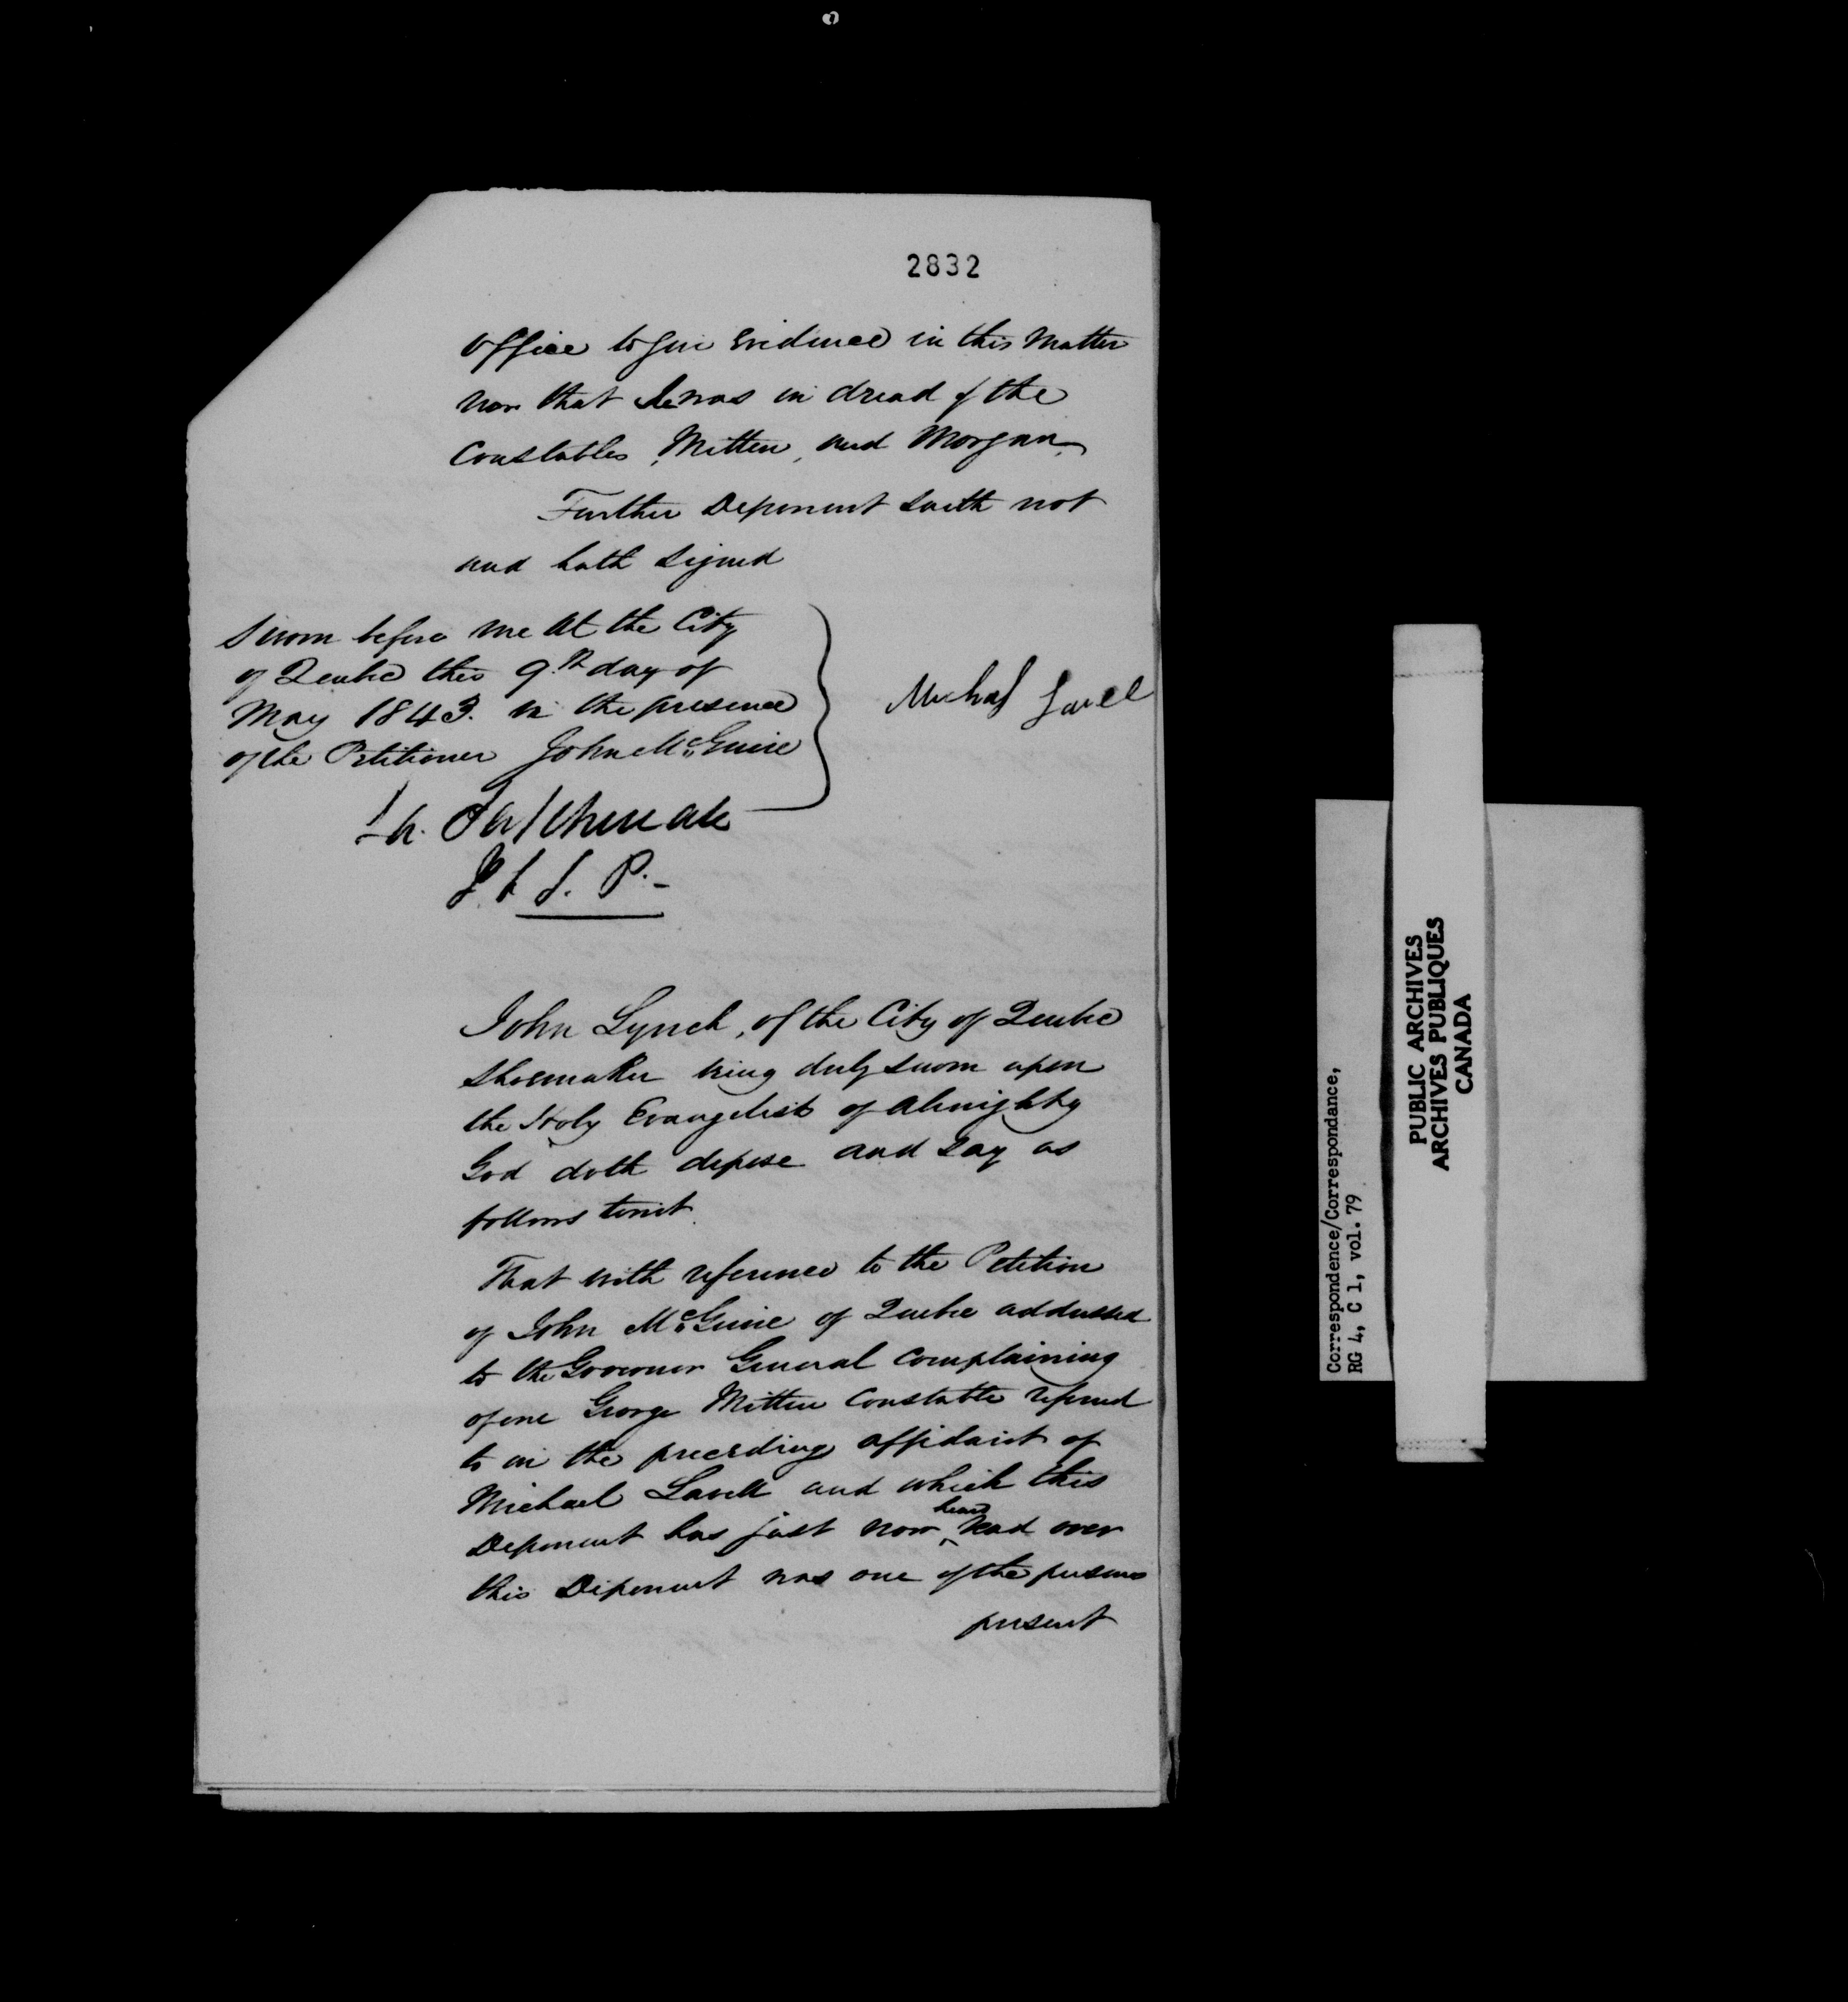 2832
Office to give Evidence in this Matter
nor that I was in dread of the
Constables, Mitten, and Morgan.
Further Deponent saith not
and hath signed
Sworn before me at the City
of Quebec this 9th day of
May 1843. in the presence
of the Petitioner John McGuire
Michael Lavell
P.
John Lynch, of the City of Quebec
Shoemaker being duly sworn upon
the Holy Evangelist of Almighty
God doth depose and say as
follows towit.
That with reference to the Petition
of John McGuire of Quebec addressed
to the Governor General complaining
of one George Mitten Constable referred
to in the preceeding affidavit of
Michael Lavell and which this
Deponent has just now heard read over
this Deponent was one of the persons
present
Correspondence/Correspondance,
RG 4, C 1, vol. 79
PUBLIC ARCHIVES
ARCHIVES PUBLIQUES
CANADA